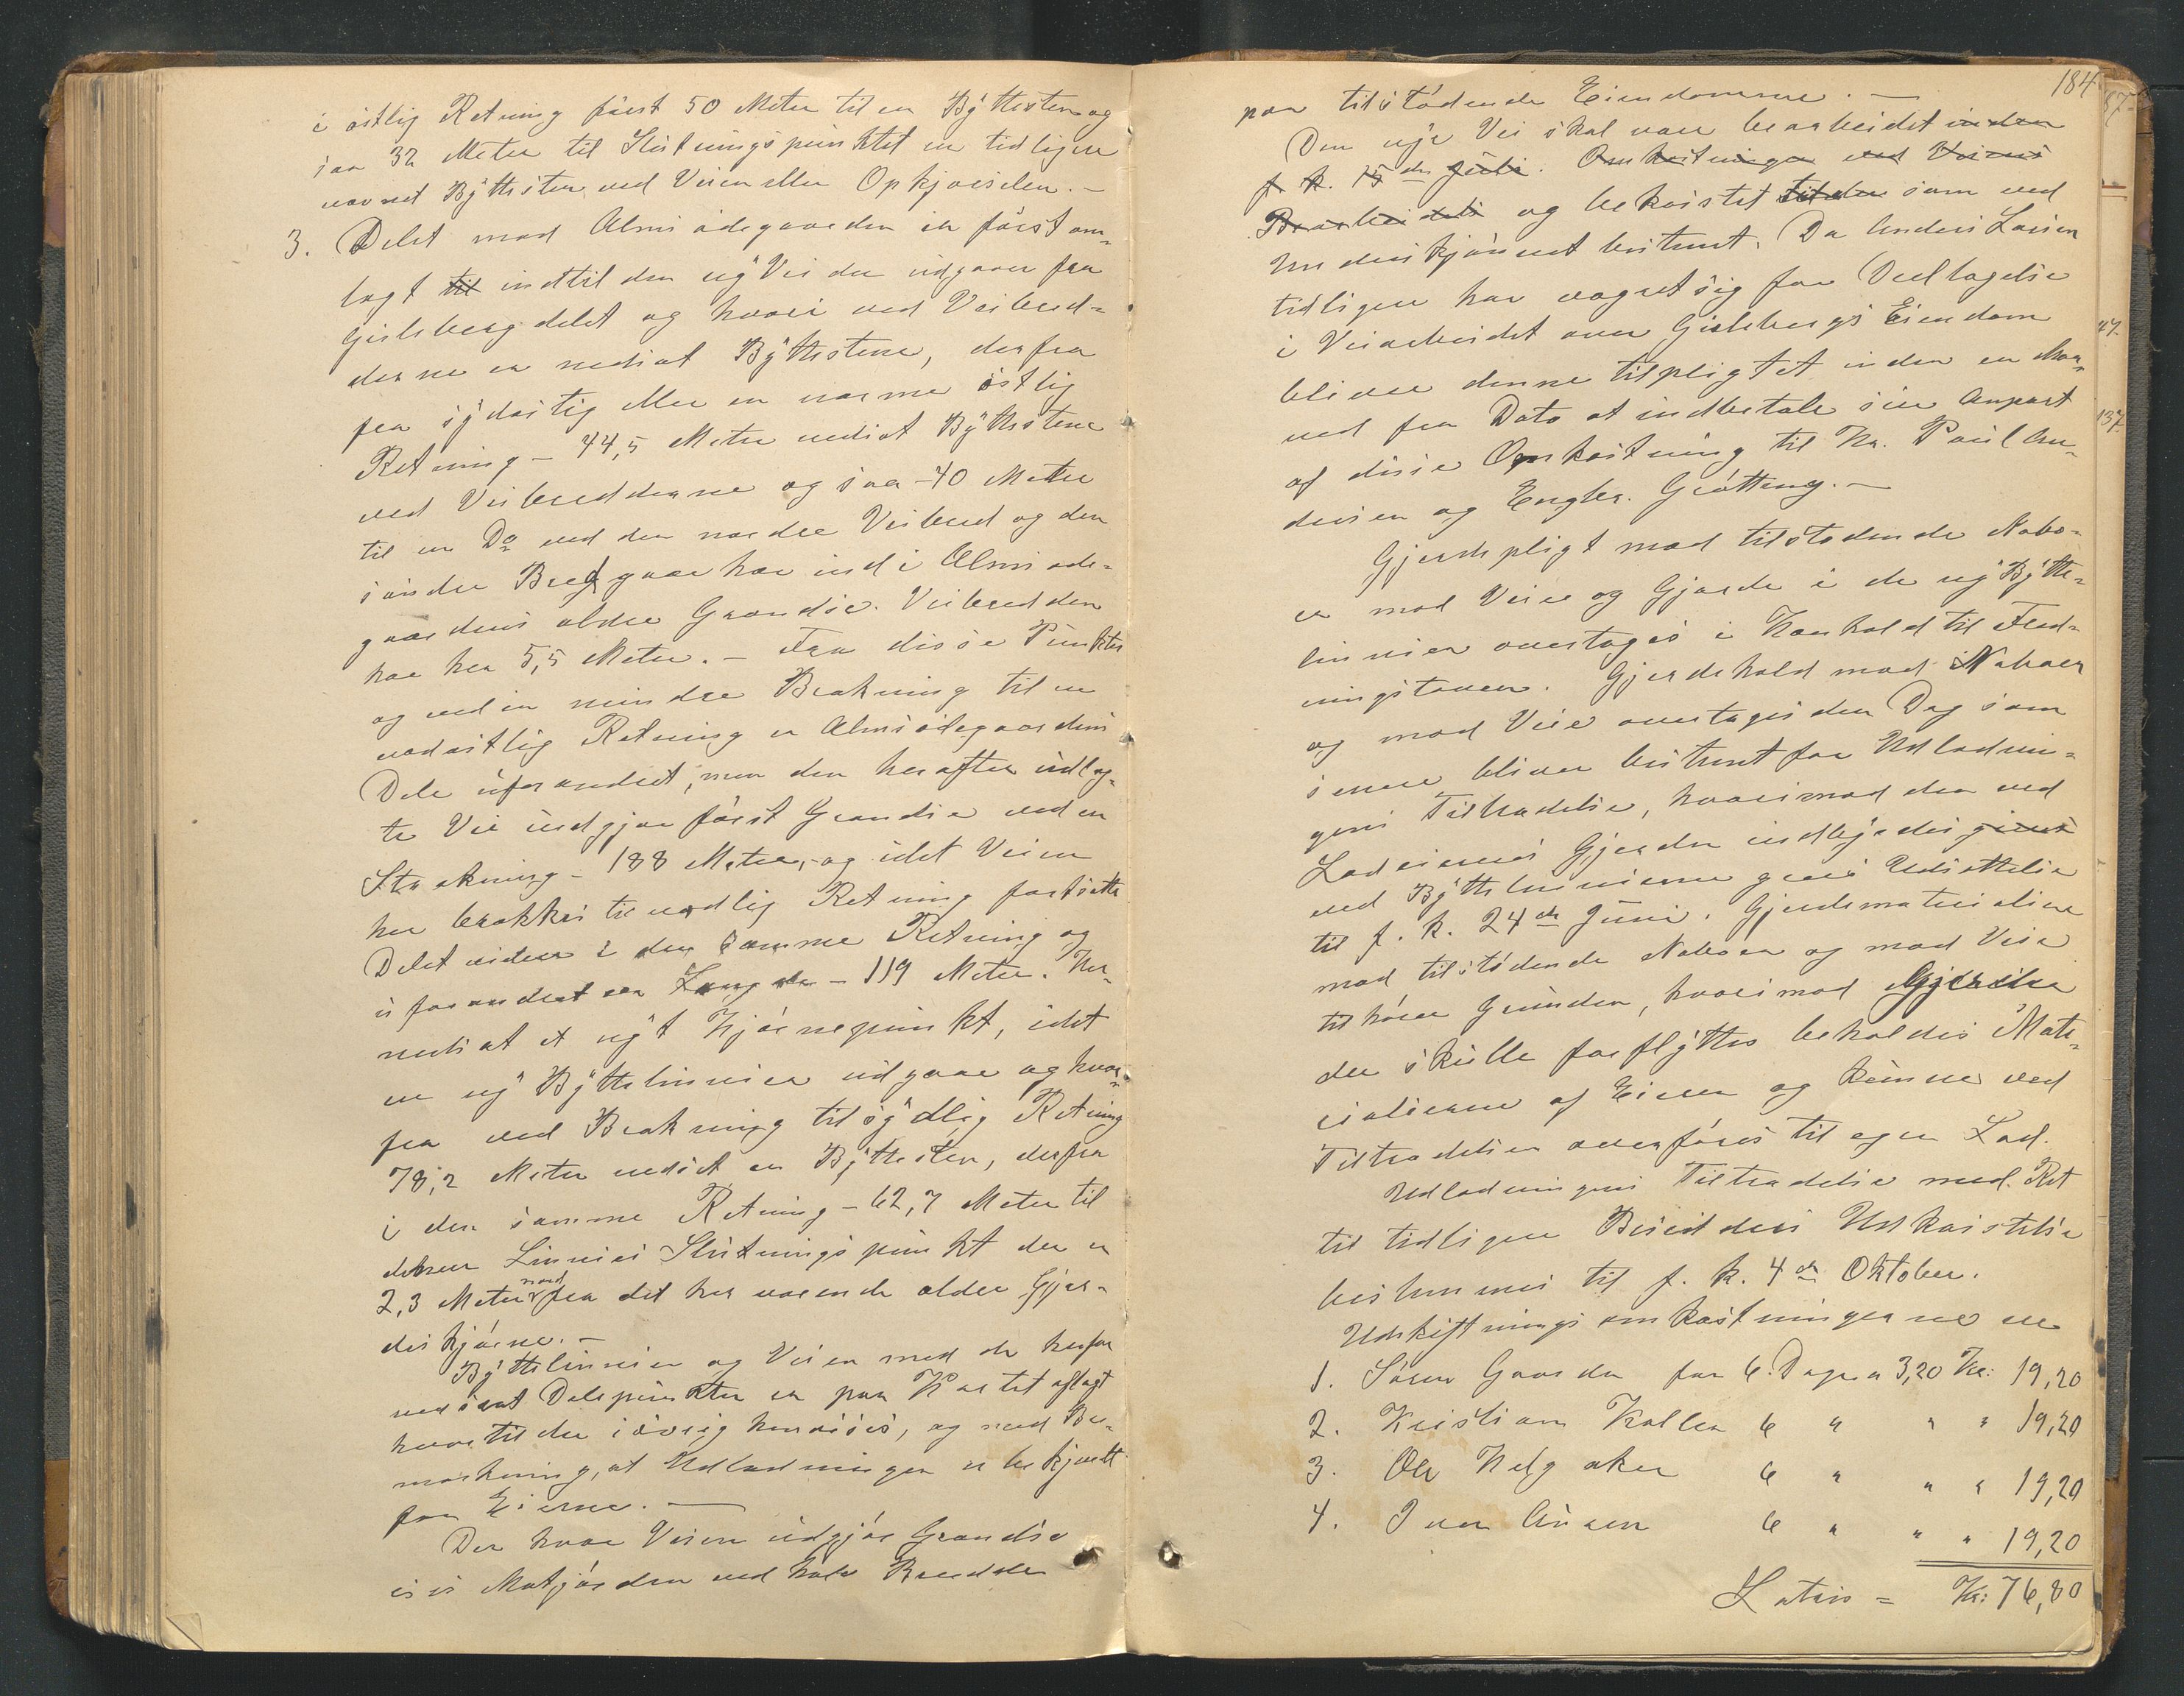 i østlig Retning først 50 Meter til en Bÿttesten og
saa 32 Meter til Slutningspunktet en tidligere
nævnet Bÿttesten ved Veien eller Opkjørselen. –
3. Delet mod Almsødegaarden er først om-
lagt til indtil den nÿ Vei der udgaar fra
Gislebergdelet og hvor ved Veibred-
derne er nedsat Bÿttestene, derfra
fra sÿdøstlig eller en nærme østlig
Retning – 44,5 Meter nedsat Bÿttestene
ved Veibredderne og saa – 40 Meter
til en Do ved den nordre Veibred og den
søndre Bred gaar her ind i Almsøde-
gaardens ældre Grændse. Veibredden
har her 5,5 Meter. – Fra disse Punkter
og ved en mindre Brækning til en
nordøstlig Retning er Almsødegaardens
Dele uforandret, men den herefter udlag-
te Vei udgjør først Grændse ved en
Strækning – 188 Meter, og idet Veien
her brækkes til nordlig Retning fortsætter
Delet videre i den samme Retning og
uforandret en Længde – 119 Meter. Her
nedsat et nÿt Hjørnepunkt, idet
en nÿ Bÿttelinnier udgaar og hvor-
fra ved Brækning til sÿdlig Retning
78,2 Meter nedsat en Bÿttesten, derfra
i den samme Retning – 62,7 Meter til
denne Linnies Slutningspunkt der er
2,3 Meter nord fra det her værende ældre Gjer-
deshjørne. –
Bÿttelinnier og Veien med de herfor
nedsat Delepunkter er paa Kartet aflagt
hvortil der iøvrig henvises, og med Be-
mærkning, at Udlodningen er bekjendt
for Eierne. –
Der hvor Veien udgjør Grændse
er Matjorden ved halv Bredde
184
paa tilstødende Eiendomme. –
Den nÿe Vei skal være bearbeidet inden
f. k. 15de Juli. Omkostningen ved Veiens
Bearbeidelse og bekostet som ved
Underskjønnet bestemt. Da Anders Larsen
tidligere har vægret sig for Deeltagelse
i Veiarbeidet over Gislebergs Eiendom
bliver denne tilpligtet inden en Maa-
ned fra Dato at indbetale sin Anpart
af disse Omkostning til Hr. Paul An-
dersen og Engbr. Grøtteng. –
Gjerdepligt mod tilstødende Nabo-
er mod Veie og Gjærde i de nÿ Bÿtte-
linnier overtages i Henhold til Fred-
ningsloven. Gjerdehold mod Naboer
og mod Veie overtages den Dag som
senere bliver bestemt for Udlodnin-
gens Tiltrædelse, hvorimod den ved
Lodeiernes Gjærder
ved Bÿttelinnierne gives Udsættelse
til f. k. 24de Juni. Gjerdematerialierne
mod tilstødende Naboer og mod Veie
tilhører Grunden, hvorimod Gjerdes
der skulle forflÿttes beholdes Mate-
rialierne af Eieren og kunne ved
Tiltrædelsen overføres til egen Lod.
Udlodningens Tiltrædelse med Ret
til tidligere Besidders Udkastelse
bestemmes til f. k. 4de Oktober.
Udskiftningsomkostningerne er
1. Søren Gaarder for 6 Dage a 3,20 Kr: 19,20
2. Kristian Koller 6 " " " 19,20
3. Ole Helgaker 6 " " " 19,20
4. Iver Ausen 6 " " " 19,20
Latris = Kr: 76,80
47.
137.